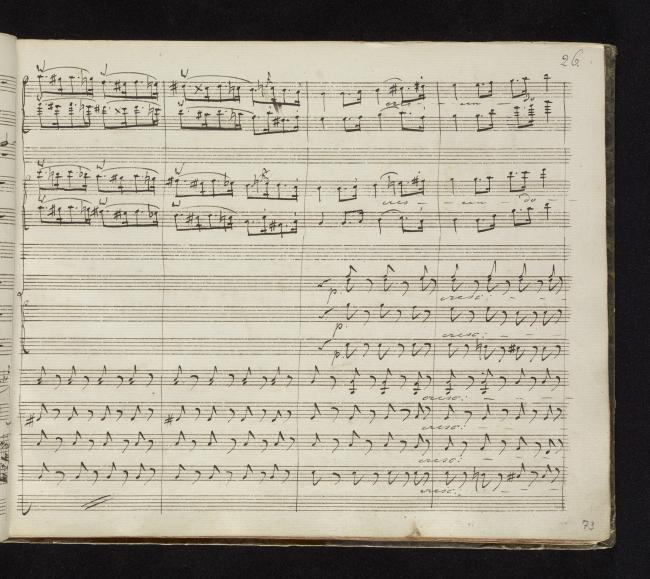 26
cres - cen - do
cres - cen - do -
p. cresc: - - -
p. cresc: - - -
p. cresc: - - -
cresc: - - -
cresc: - - -
cresc: - - -
cresc: - - -
73